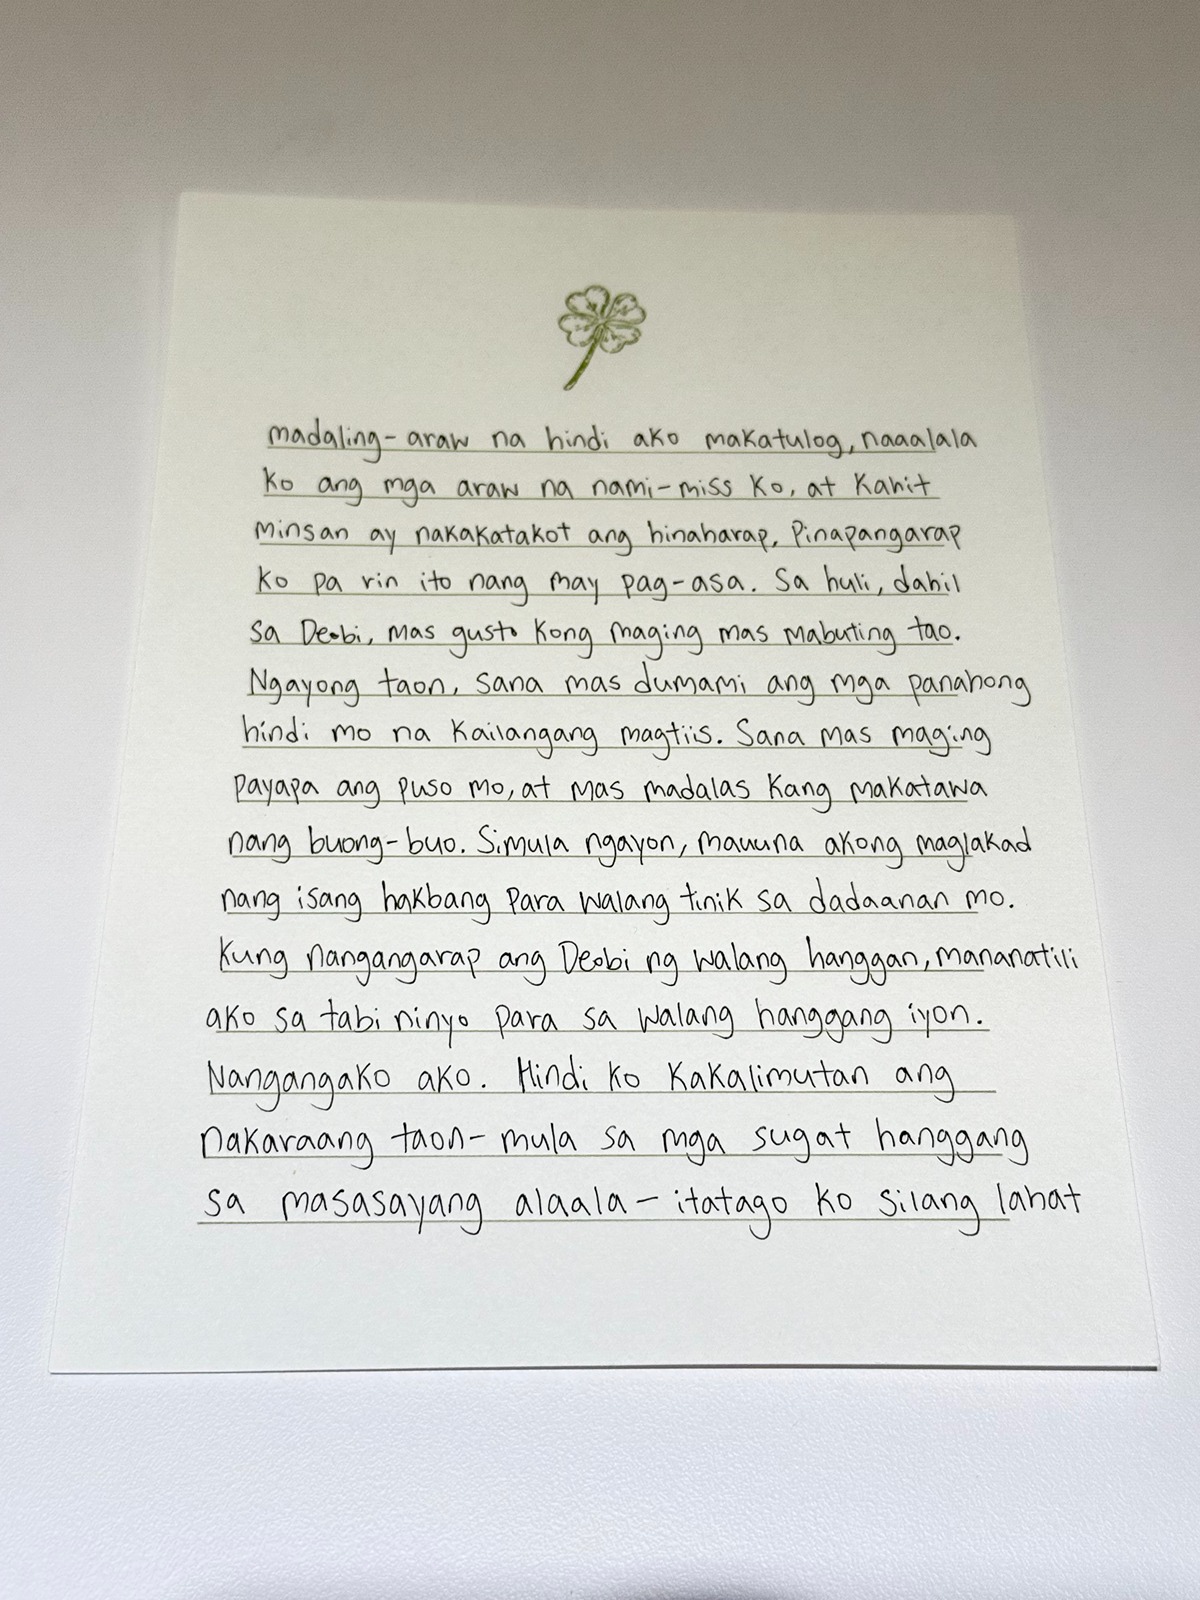 madaling-araw na hindi ako makatulog, naaalala
ko ang mga araw na nami-miss ko, at kahit
minsan ay nakakatakot ang hinaharap, pinapangarap
ko pa rin ito nang may pag-asa. Sa huli, dahil
sa Deobi, mas gusto kong maging mas mabuting tao.
Ngayong taon, sana mas dumami ang mga panahong
hindi mo na kailangang magtiis. Sana mas maging
payapa ang puso mo, at mas madalas kang makatawa
nang buong-buo. Simula ngayon, mauuna akong maglakad
nang isang hakbang para walang tinik sa dadaanan mo.
Kung nangangarap ang Deobi ng walang hanggan, mananatili
ako sa tabi ninyo para sa walang hanggang iyon.
Nangangako ako. Hindi ko kakalimutan ang
nakaraang taon- mula sa mga sugat hanggang
sa masasayang alaala- itatago ko silang lahat